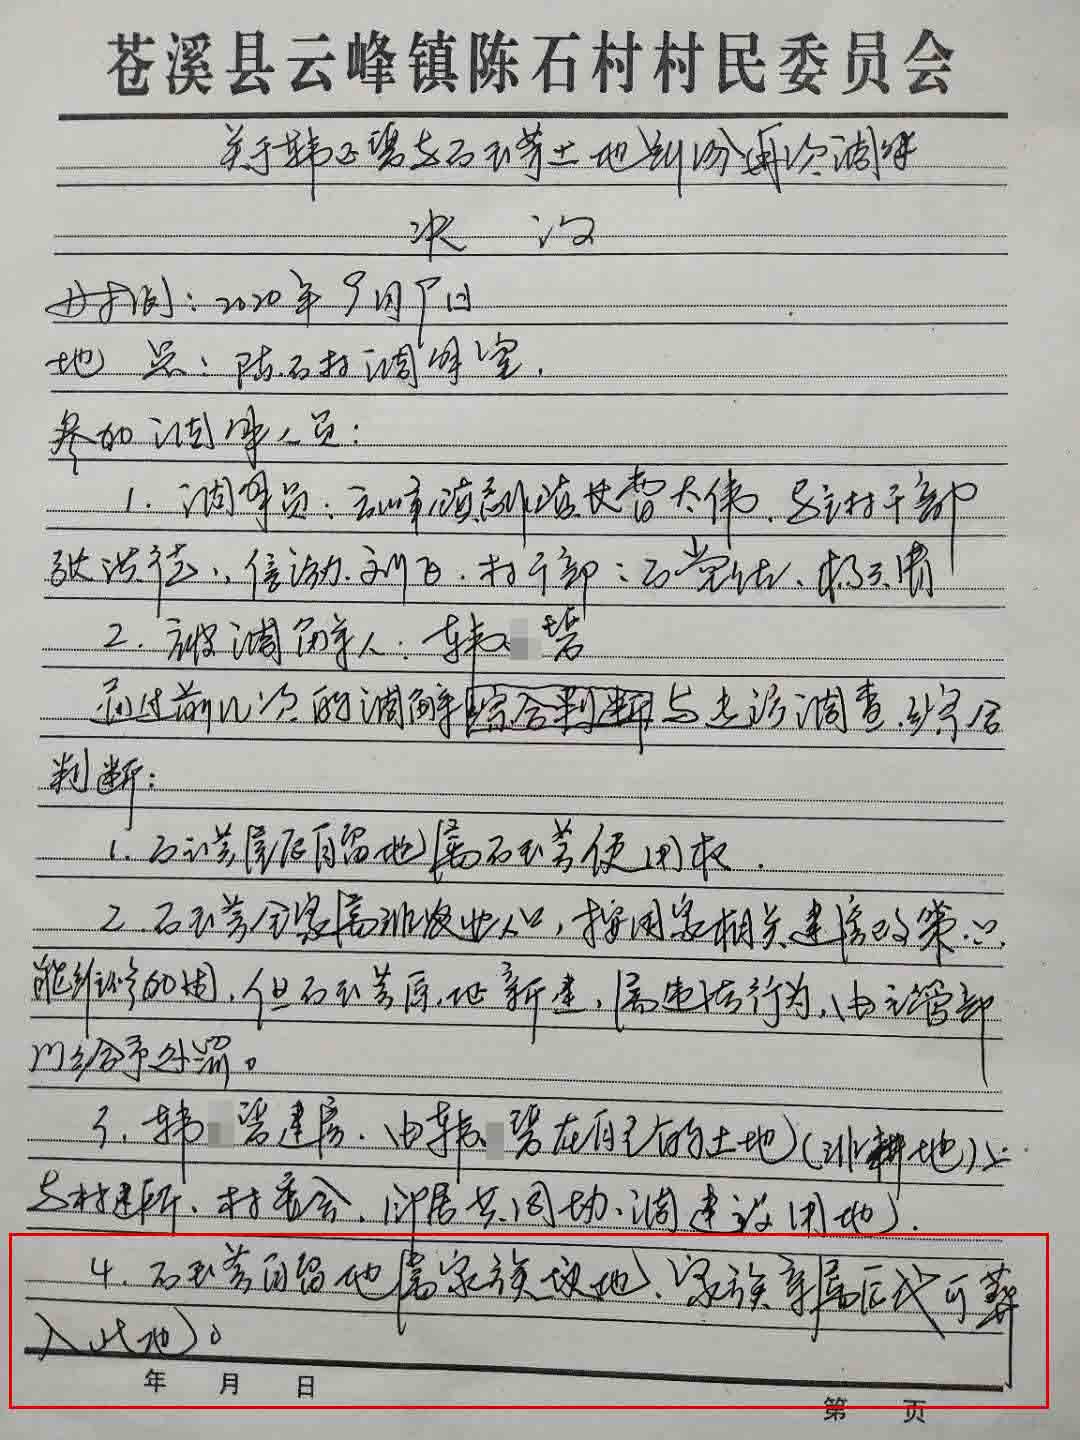 苍溪县云峰镇陈石村村民委员会
关于韩正碧与石玉芳土地纠纷再次调解
决议
时间:2020年9月7日
地 点:陈石村调解室.
参加调解人员:
1. 调解员:云峰镇副镇长 太伟、驻村干部
张洪 、信访办刘飞.村干部:石党 、杨天
2. 被调解人:韩 碧
通过前几次的调解综合判断与走访调查.综合
判断:
1. 石玉芳屋后自留地属石玉芳使用权.
2. 石玉芳全家属非农业人口,按国家相关建房政策.只
能维修加固,但石玉芳原地新建,属违法行为,由主管部
门给予处罚。
3. 韩 碧建房.由韩 碧在自己的土地(非耕地)上
与村建所、村委会、邻居共同协调建设用地.
4. 石玉芳自留地属家族坟地、家族亲属后代可葬
入此地。
年 月 日
第 页